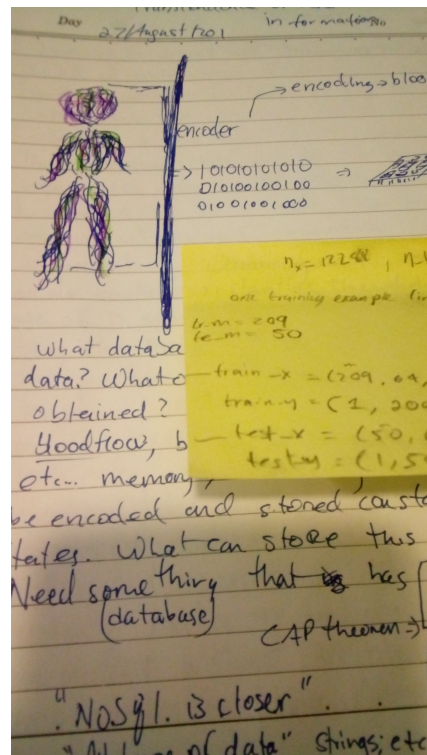 Day
27/August/201
information
encoding → bloo
encoder
⇒ 10101010101010 ⇒
01010010 0100
0100 1001000
nx = 12288 , n_
one training example (in
tr_m = 209
te_m = 50
train_x = (209, 64,
train_y = (1, 209
test_x = (50,
test_y = (1, 5
what databa
data? What o
obtained?
bloodflow, b
etc... memory,
be encoded and stored consta
tates. What can store this
Need something that has
(database)
CAP theorem ⇒
"NoSql. is closer"
of data" strings; etc